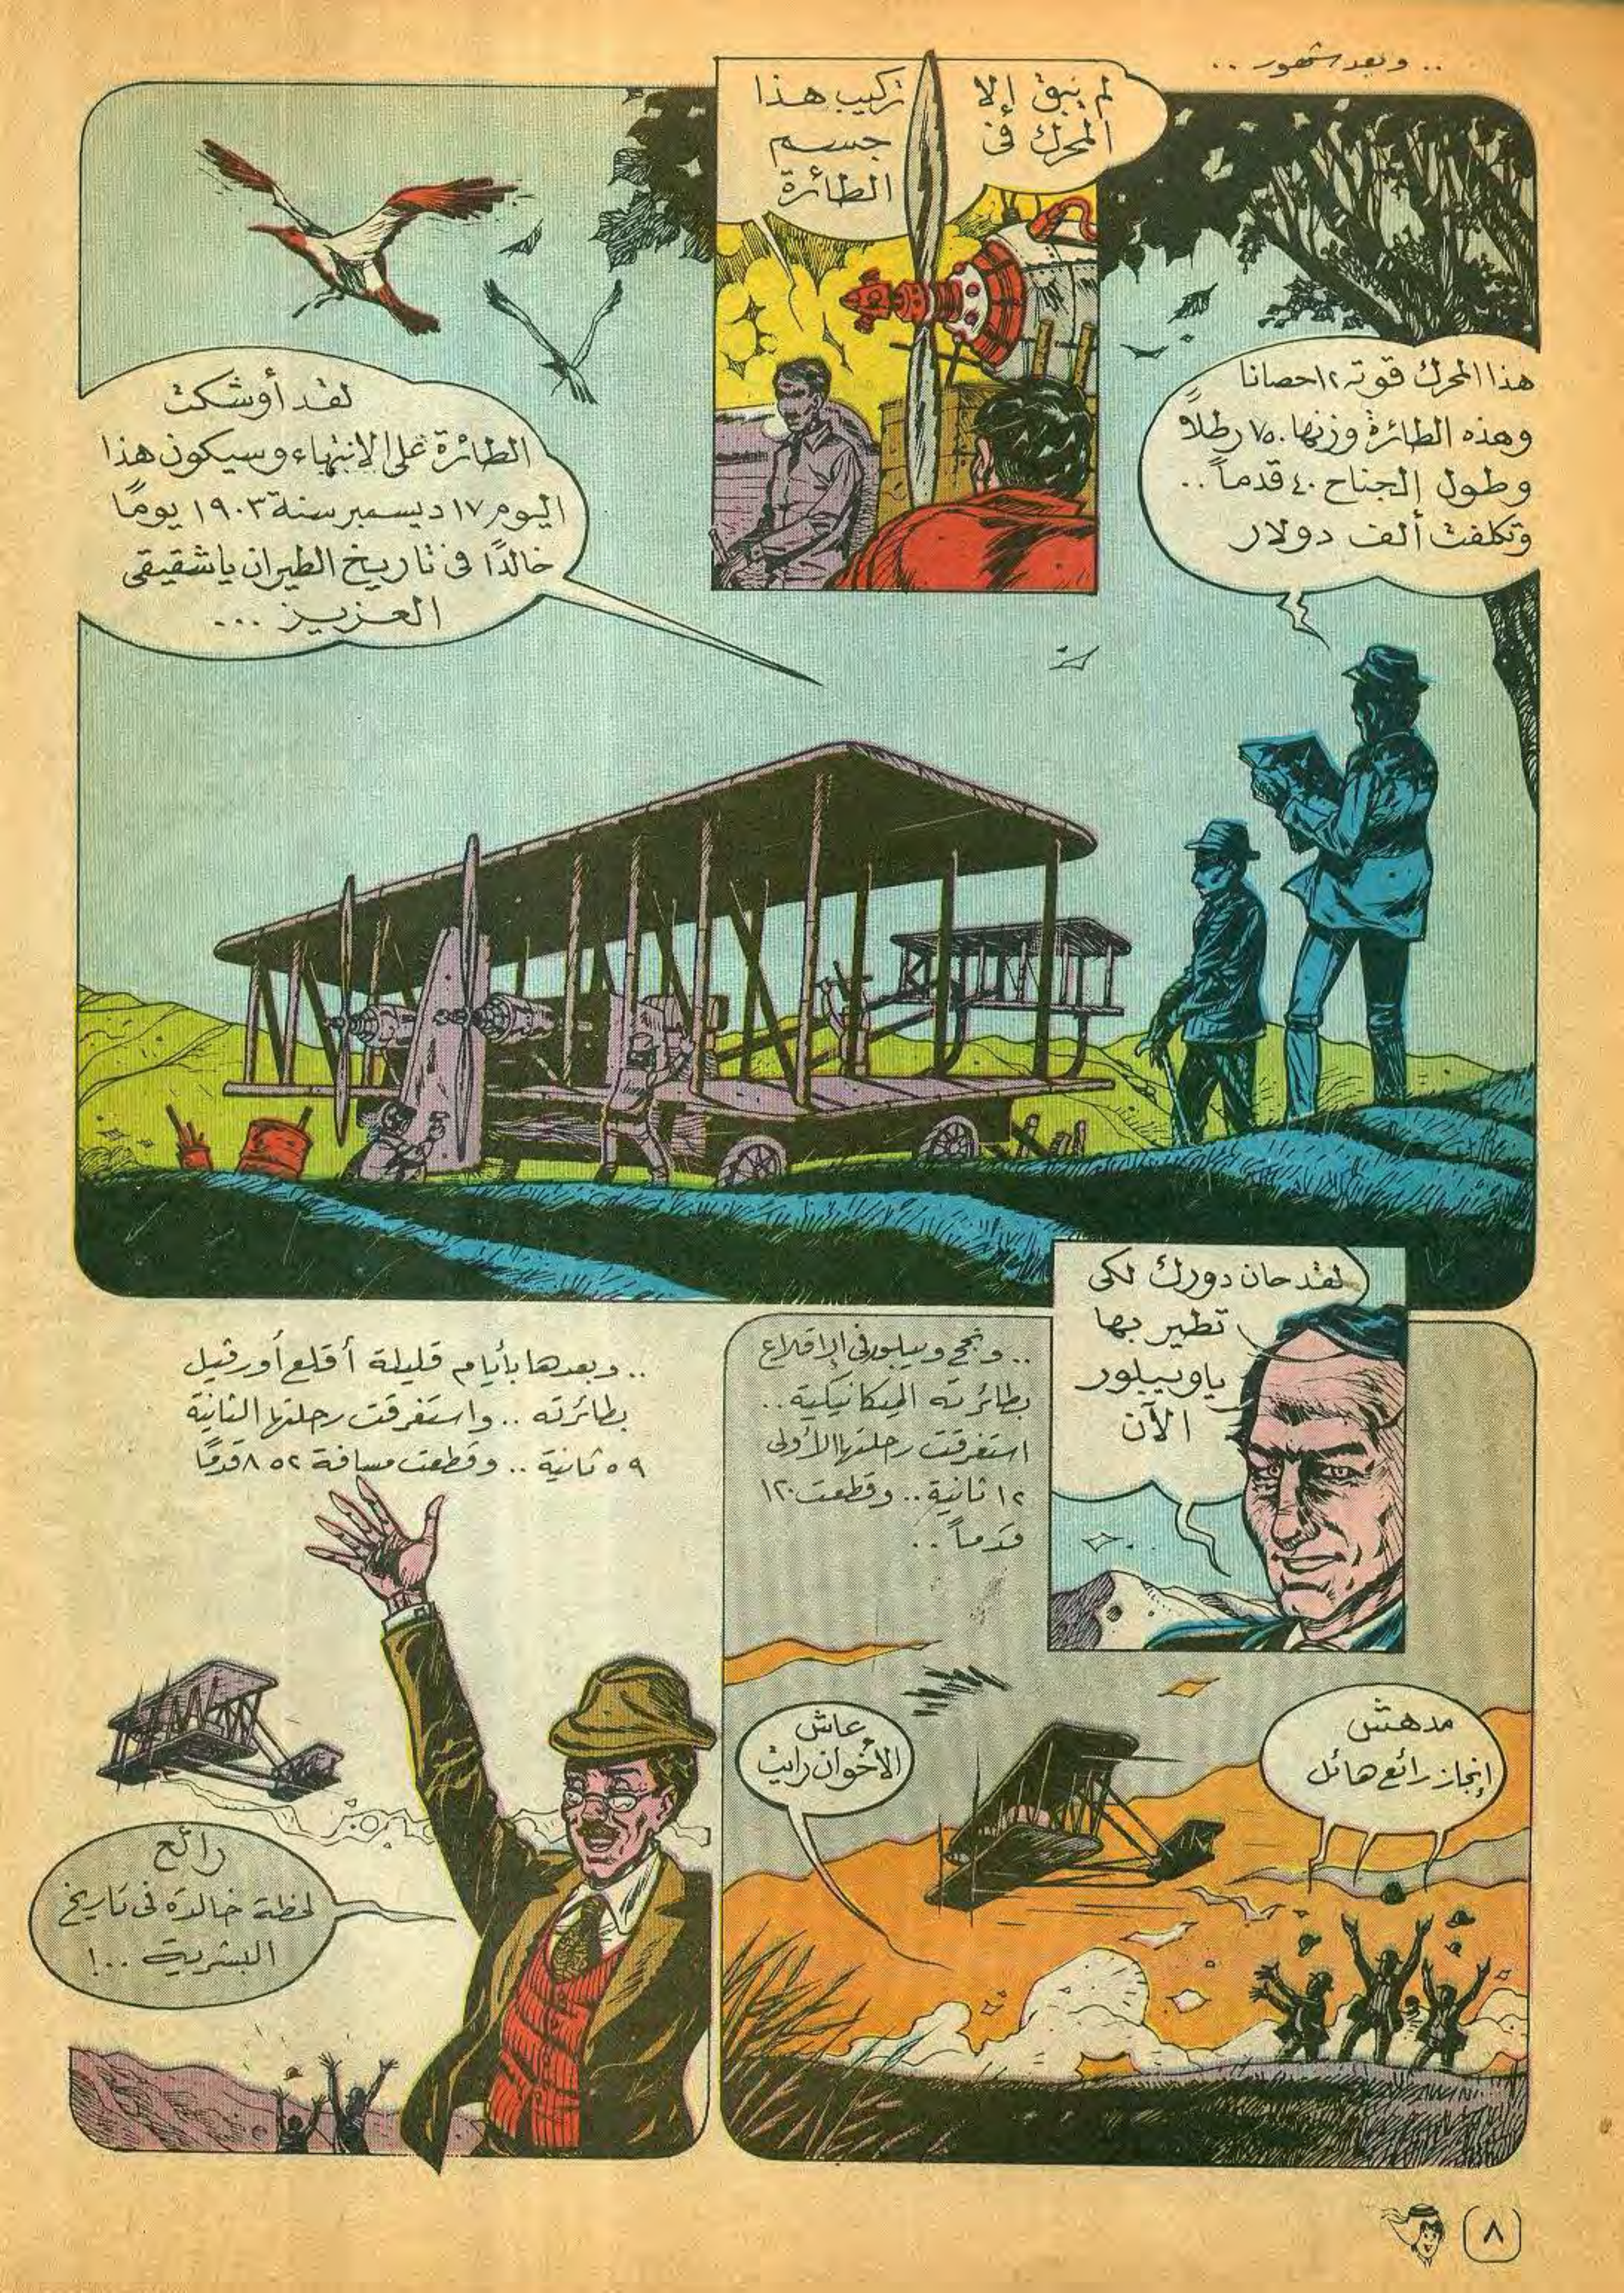 .. وبعد شهور ..
لم يبق إلا تركيب هذا
المحرك فى جسم
الطائرة
هذا المحرك قوته ١٢ حصانا
وهذه الطائرة وزنها ٧٥٠ رطلاً
وطول الجناح ٤٠ قدماً ..
وتكلفت ألف دولار
لقد أوشكت
الطائرة على الانتهاء وسيكون هذا
اليوم ١٧ ديسمبر سنة ١٩٠٣ يومًا
خالدًا فى تاريخ الطيران يا شقيقى
العزيز ...
لقد حان دورك لكى
تطير بها
يا ويبلور
الآن
.. ونجح ويبلور فى الإقلاع
بطائرته الميكانيكية ..
استغرقت رحلتها الأولى
١٢ ثانية .. وقطعت ١٢٠
قدماً ..
مدهش
إنجاز رائع هائل
عاش
الأخوان رايت
.. وبعدها بأيام قليلة أقلع أورفيل
بطائرته .. واستغرقت رحلتها الثانية
٥٩ ثانية .. وقطعت مسافة ٨٥٢ قدمًا
رائع
لحظة خالدة فى تاريخ
البشرية ..!
٨